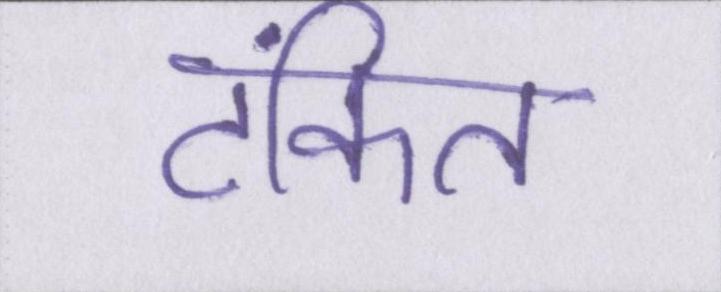 टंकित